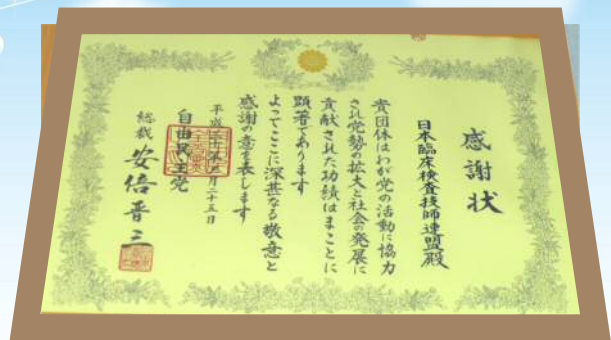 感謝状
日本臨床検査技師連盟殿
貴団体はわが党の活動に協力
され党勢の拡大と社会の発展に
貢献された功績はまことに
顕著であります
よってここに深甚なる敬意と
感謝の意を表します
平成三十年三月二十五日
自由民主党
総裁 安倍晋三